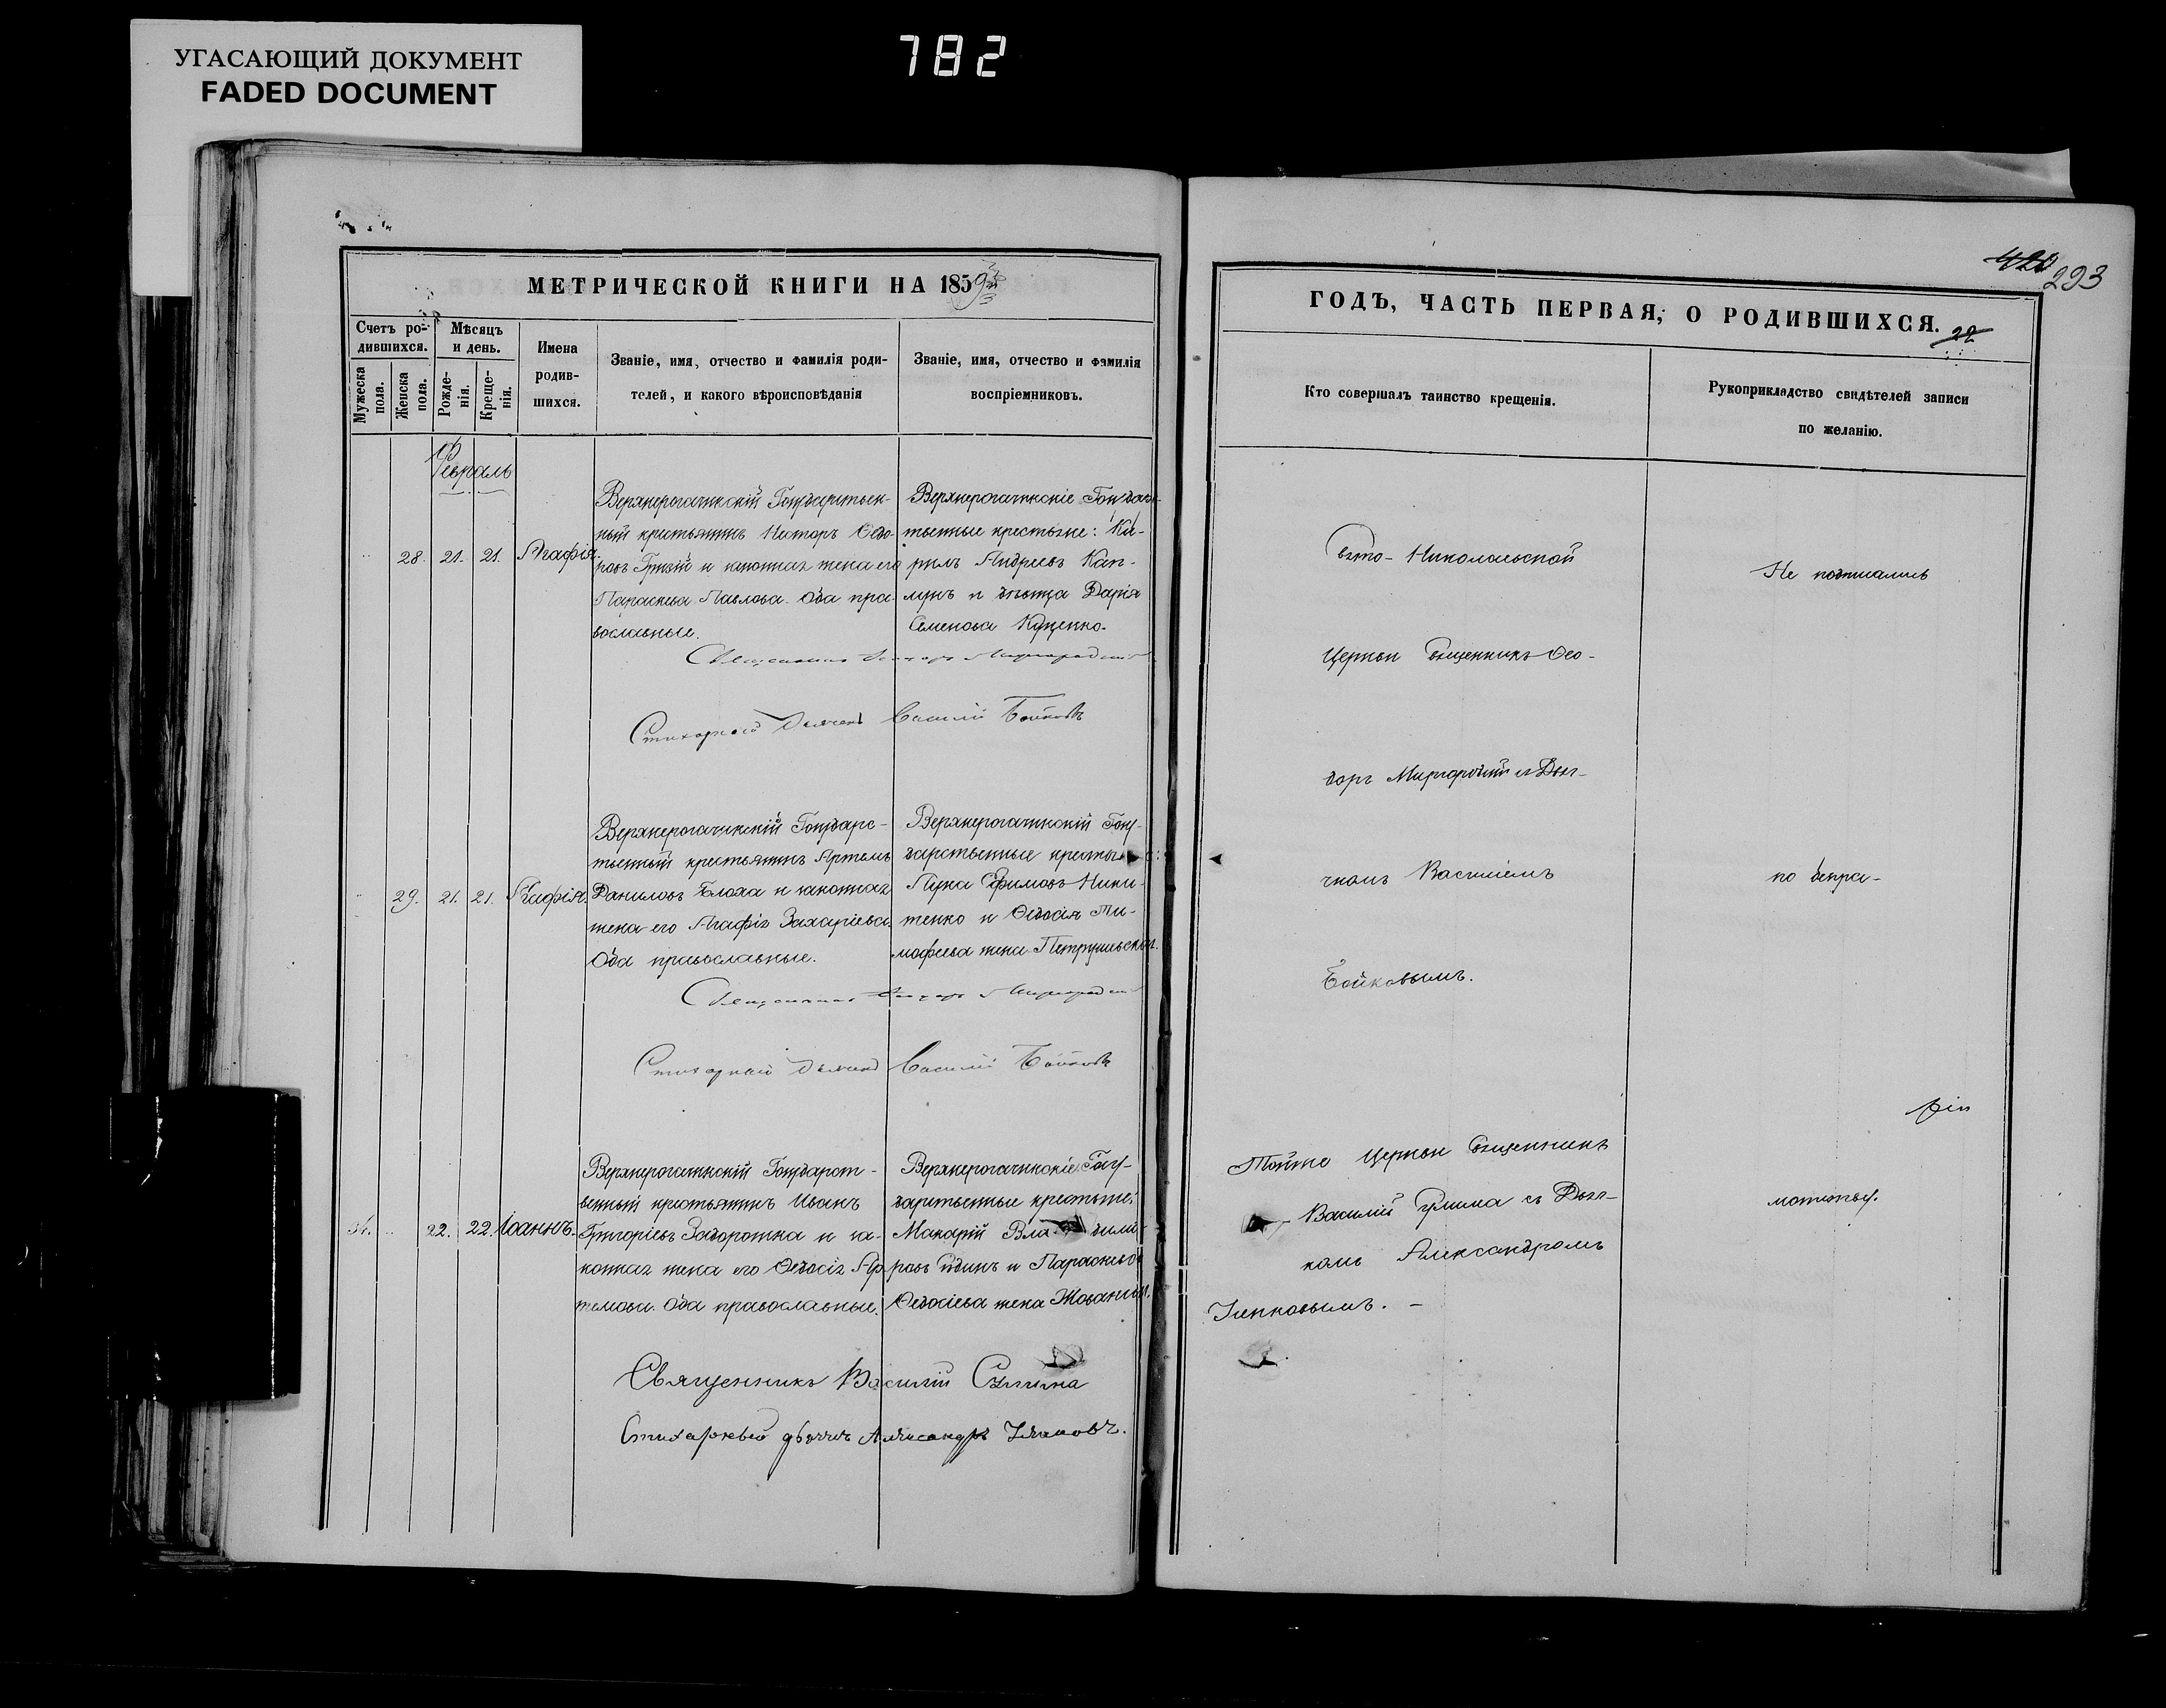 782
УГАСАЮЩИЙ ДОКУМЕНТ
FADED DOCUMENT
МЕТРИЧЕСКОЙ КНИГИ НА 1859
Счетъ ро-
дившихся.
Мужеска пола.
Женска пола.
Мѣсяцъ
и день.
Рожде-
нія.
Креще-
нія.
Имена
родив-
шихся.
Званіе, имя, отчество и фамилія роди-
телей, и какого вѣроисповѣданія
Званіе, имя, отчество и фамилія
воспріемниковъ.
Февраль
28. 21. 21. Агафія.
Верхнерогачикскій Государствен-
ный крестьянинъ Несторъ Ѳедо-
ровъ и законная жена его
Параскева Павлова. Оба пра-
вославные.
Верхнерогачикскіе Государ-
ственные крестьяне: Ки-
рилъ Андреевъ Кап-
лунъ и дѣвица Дарія
Семенова Куценко.
Священникъ Ѳеодоръ Миргородскій
Стихарный Дьячекъ Василій Бойковъ
29. 21. 21. Агафія.
Верхнерогачикскій Государс-
твенный крестьянинъ Артемъ
Даниловъ Блоха и законная
жена его Агафія Захаріева.
Оба православные.
Верхнерогачикскій Госу-
дарственные
Лука Ефимовъ Ники-
тенко и Ѳедосія Ти-
мофеева жена
Священникъ Ѳеодоръ Миргородскій
Стихарный Дьячекъ Василій Бойковъ
34. 22. 22. Іоаннъ.
Верхнерогачикскій Государст-
венный крестьянинъ Иванъ
Григоріевъ Задорожка и за-
конная жена его Ѳедосія Ар-
темова. Оба православные.
Верхнерогачикскіе Госу-
дарственные крестьяне:
Макарій
ровъ и Параскева
Ѳедосіева жена
Священникъ Василій
Стихарный дьячекъ Александръ
420
293
ГОДЪ, ЧАСТЬ ПЕРВАЯ, О РОДИВШИХСЯ.
22
Кто совершалъ таинство крещенія.
Рукоприкладство свидѣтелей записи
по желанію.
Свято-Николаевской
Церкви Священникъ Ѳео-
доръ Миргородскій съ Дья-
чкомъ Василіемъ
Бойковымъ.
Не подписались
по безгра-
мотству.
Тойже Церкви Священникъ
Василій съ Дья-
комъ Александромъ